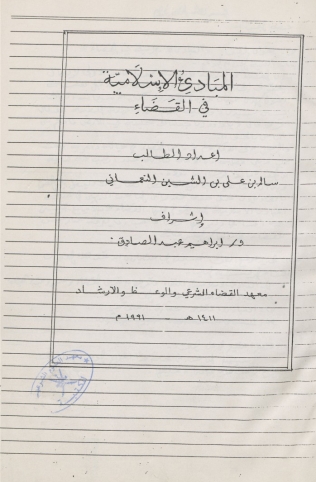 المبَادِئُ الإِسْلَاميّة
في القَضَاءِ
إعداد الطالب
سالم بن علي بن الشين النعماني
إشراف
د/ ابراهيم عبد الصادق
معهد القضاء الشرعي والوعظ والارشاد
١٤١١ هـ - ١٩٩١ م